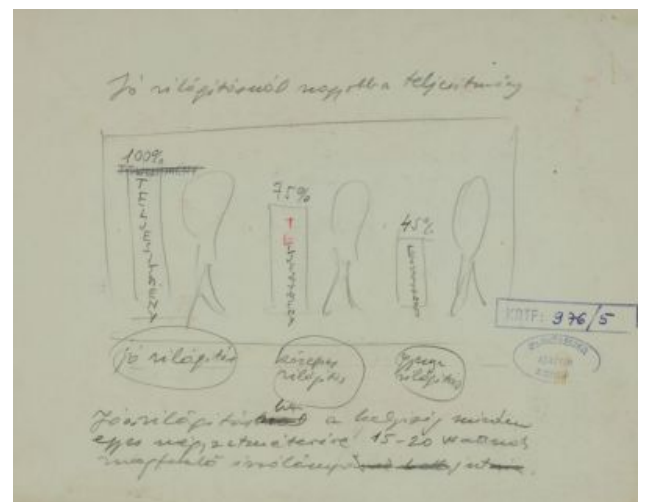 Jó világításnál nagyobb a teljesítmény
100%
TELJESÍTMÉNY
75%
TELJESÍTMÉNY
45%
jó világítás
közepes világítás
gyenge világítás
KRTF: 976/5
Jó világítás a helyiség minden
egyes négyzetméterére 15-20 wattnak
megfelelő